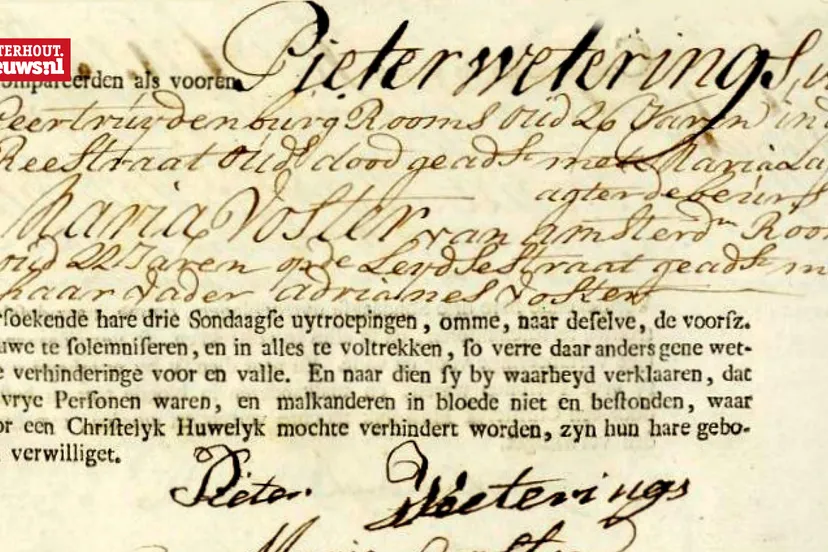 TERHOUT.
euwsnl
ompareerden als vooren Pieter weterings, v
eertruydenburg Rooms oud 26 Jaren in d
Reestraat Ouds dood geadst met Maria La
agter de beurs
Maria Voster van amsterdm Room
oud 22 Jaren op de Leydsestraat geadst m
haar vader adrianes Voster
rsoekende hare drie Sondaagse uytroepingen, omme, naar deselve, de voorsz.
uwe te solemniseren, en in alles te voltrekken, so verre daar anders gene wet-
e verhinderinge voor en valle. En naar dien sy by waarheyd verklaaren, dat
vrye Personen waren, en malkanderen in bloede niet en bestonden, waar
or een Christelyk Huwelyk mochte verhindert worden, zyn hun hare gebo-
verwilliget.
Pieter Weeterings